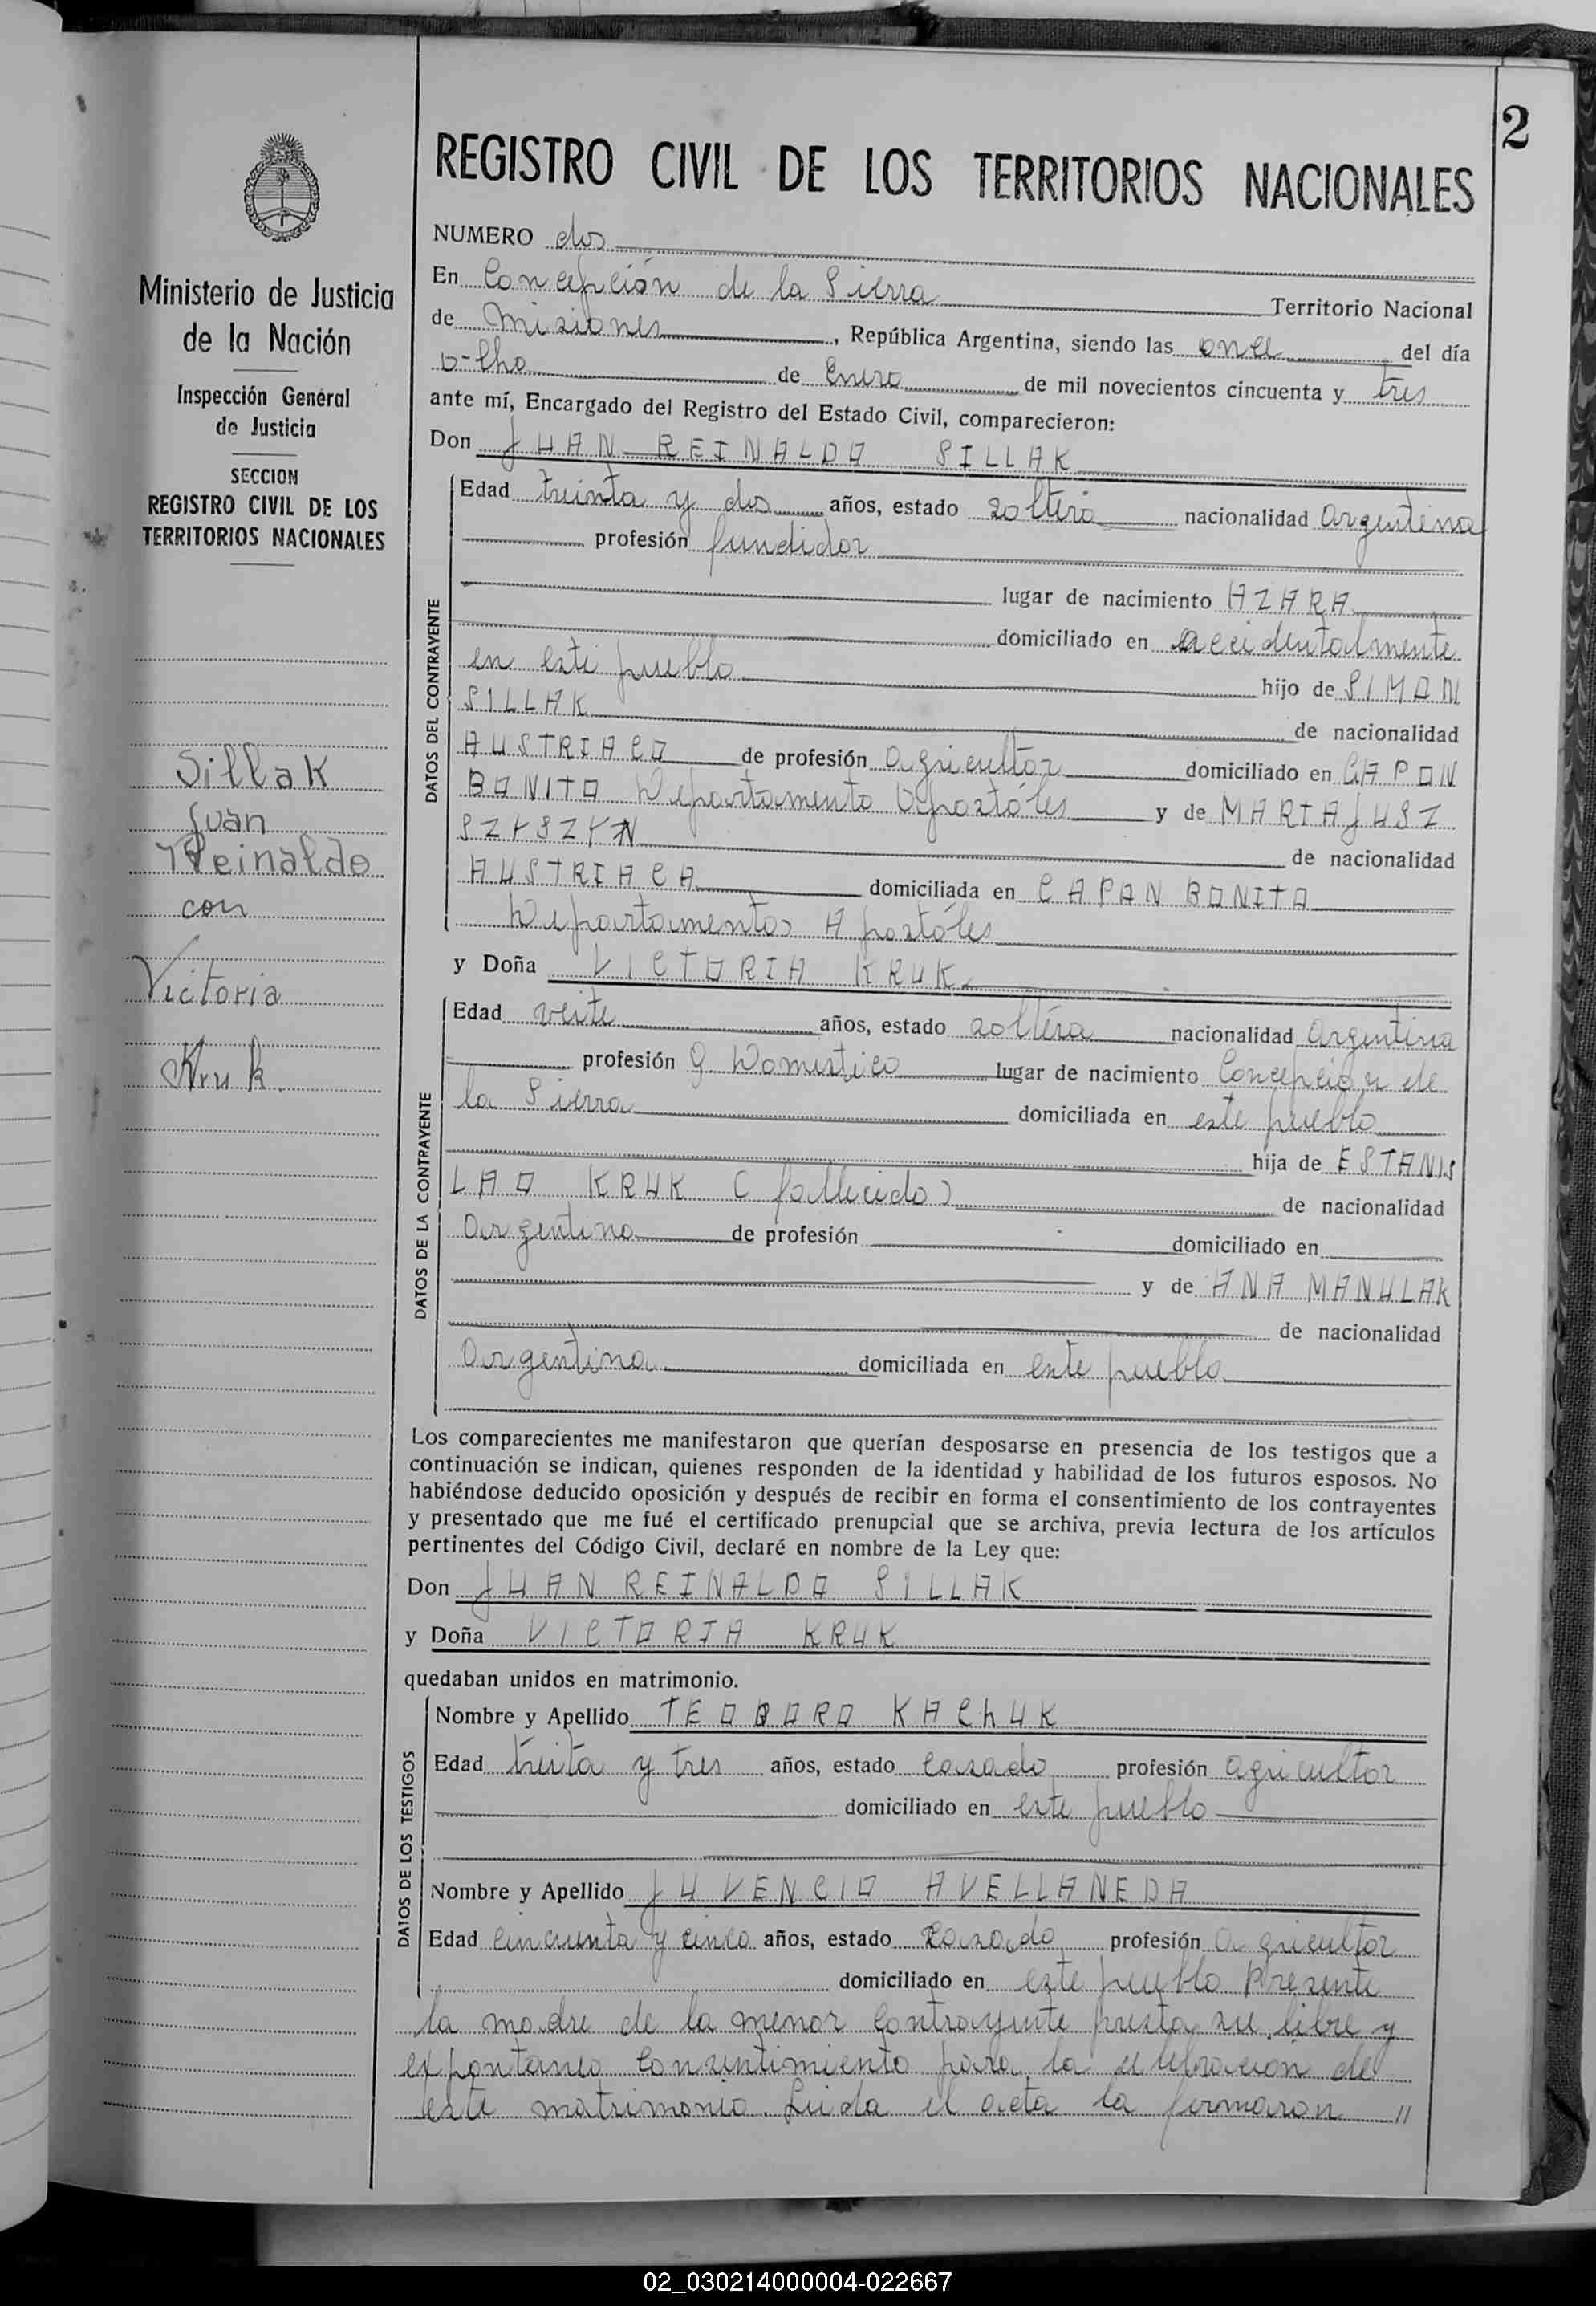 2
REGISTRO CIVIL DE LOS TERRITORIOS NACIONALES
Ministerio de Justicia
de la Nación
Inspección General
de Justicia
SECCION
REGISTRO CIVIL DE LOS
TERRITORIOS NACIONALES
Sillak
Juan
Reinaldo
con
Victoria
Kruk.
NUMERO dos
En Concepción de la Sierra Territorio Nacional
de Misiones, República Argentina, siendo las once del día
ocho de Enero de mil novecientos cincuenta y tres
ante mí, Encargado del Registro del Estado Civil, comparecieron:
Don JUAN REINALDO SILLAK
DATOS DEL CONTRAYENTE
Edad treinta y dos años, estado soltero nacionalidad argentina
profesión fundidor
lugar de nacimiento AZARA
domiciliado en accidentalmente
en este pueblo hijo de SIMON
SILLAK de nacionalidad
AUSTRIACO de profesión agricultor domiciliado en CAPON
BONITO Departamento Apostóles y de MARIA JUSZ
SZYSZYN de nacionalidad
AUSTRIACA domiciliada en CAPAN BONITO
Departamento Apostóles
y Doña VICTORIA KRUK
DATOS DE LA CONTRAYENTE
Edad veite años, estado soltera nacionalidad argentina
profesión Q. Domestico lugar de nacimiento Concepcion de
la Sierra domiciliada en este pueblo
hija de ESTANIS
LAO KRUK (fallecido) de nacionalidad
argentino de profesión domiciliado en
y de ANA MANULAK
de nacionalidad
argentina domiciliada en este pueblo
Los comparecientes me manifestaron que querían desposarse en presencia de los testigos que a
continuación se indican, quienes responden de la identidad y habilidad de los futuros esposos. No
habiéndose deducido oposición y después de recibir en forma el consentimiento de los contrayentes
y presentado que me fué el certificado prenupcial que se archiva, previa lectura de los artículos
pertinentes del Código Civil, declaré en nombre de la Ley que:
Don JUAN REINALDO SILLAK
y Doña VICTORIA KRUK
quedaban unidos en matrimonio.
DATOS DE LOS TESTIGOS
Nombre y Apellido TEODORO KAChUK
Edad treita y tres años, estado casado profesión agricultor
domiciliado en este pueblo
Nombre y Apellido JUVENCIO AVELLANEDA
Edad cincuenta y cinco años, estado casado profesión agricultor
domiciliado en este pueblo Presente
la madre de la menor contrayente presta su libre y
expontaneo consentimiento para la celebracion de
este matrimonio. Leida el acta la firmaron //
02_030214000004-022667